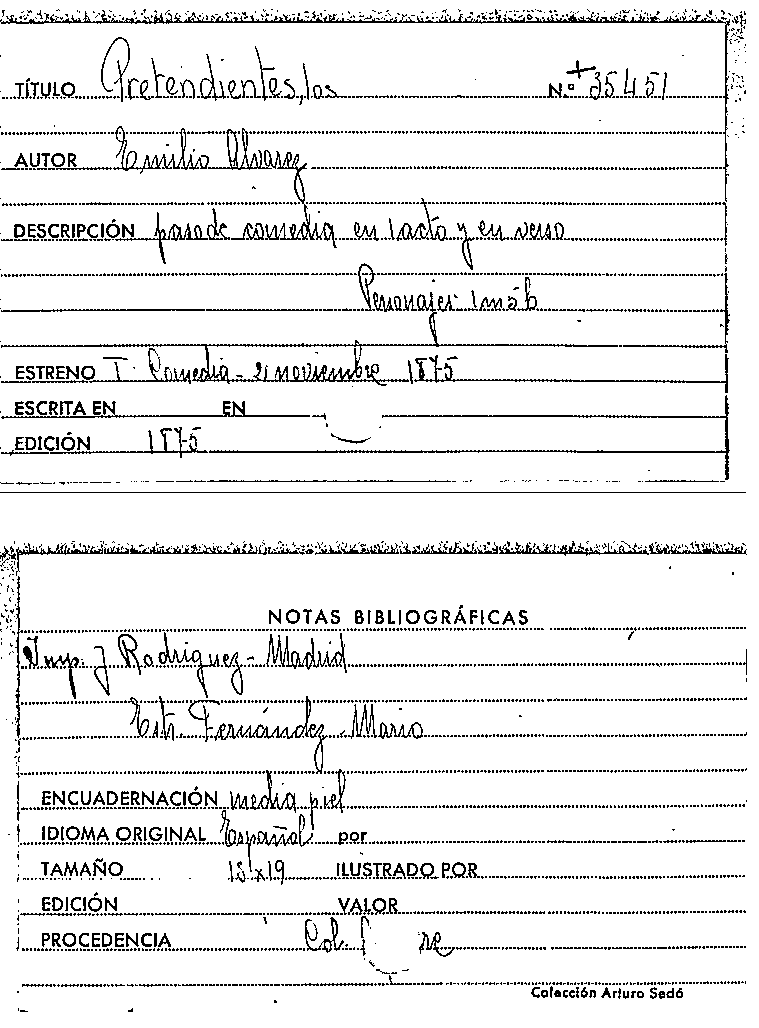 TÍTULO Pretendientes, los N.º + 35451
AUTOR Emilio Alvarez
DESCRIPCIÓN paso de comedia en 1 acto y en verso
Personajes 1m
ESTRENO T. Comedia - noviembre 1875
ESCRITA EN EN
EDICIÓN 1875
NOTAS BIBLIOGRÁFICAS
Imp. J Rodriguez - Madrid
Estr. Fernández - Mario
ENCUADERNACIÓN media piel
IDIOMA ORIGINAL Español por
TAMAÑO x19 ILUSTRADO POR
EDICIÓN VALOR
PROCEDENCIA Col.
Colección Arturo Sedó